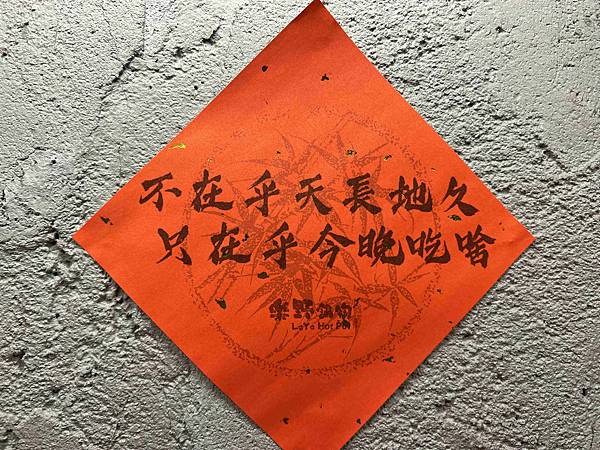 不在乎天長地久
只在乎今晚吃啥
樂野鍋物
LaYa Hot Pot